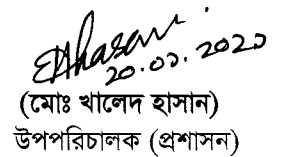 20.01.2020
(মোঃ খালেদ হাসান)
উপপরিচালক (প্রশাসন)